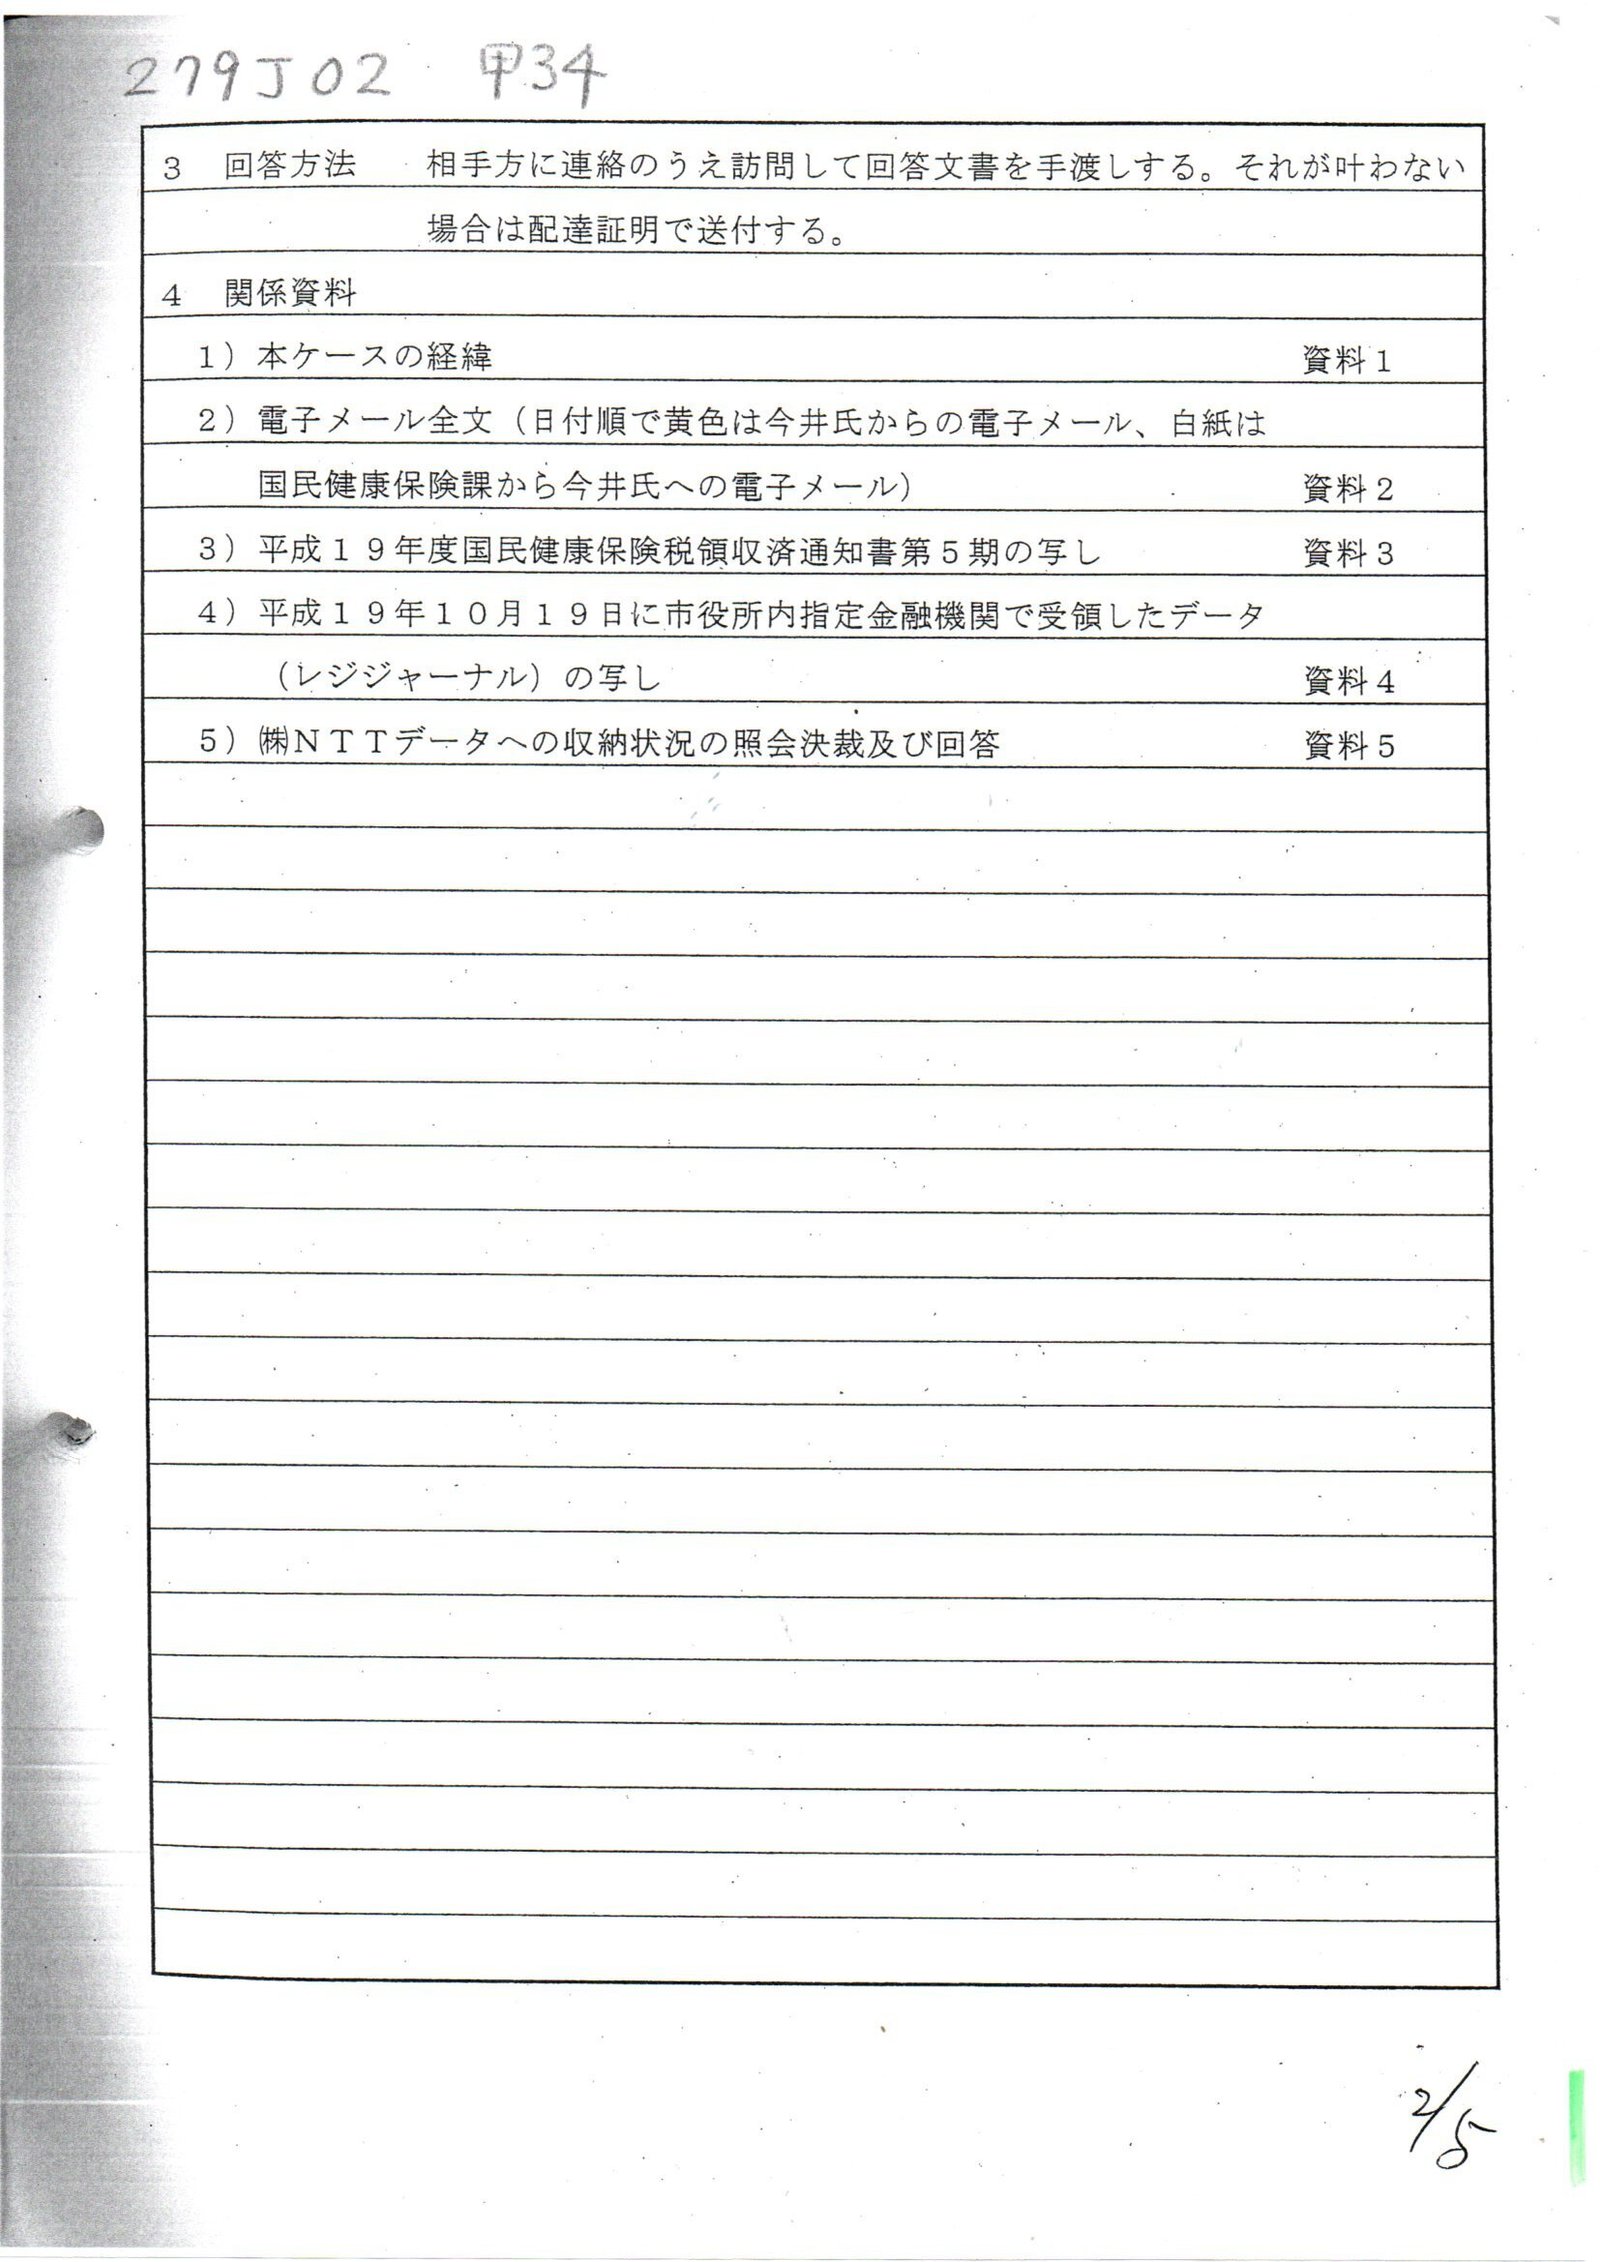 279J02 甲34
3 回答方法 相手方に連絡のうえ訪問して回答文書を手渡しする。それが叶わない
場合は配達証明で送付する。
4 関係資料
1）本ケースの経緯 資料1
2）電子メール全文（日付順で黄色は今井氏からの電子メール、白紙は
国民健康保険課から今井氏への電子メール） 資料2
3）平成１９年度国民健康保険税領収済通知書第５期の写し 資料3
4）平成１９年１０月１９日に市役所内指定金融機関で受領したデータ
（レジジャーナル）の写し 資料4
5）㈱ＮＴＴデータへの収納状況の照会決裁及び回答 資料5
2/5